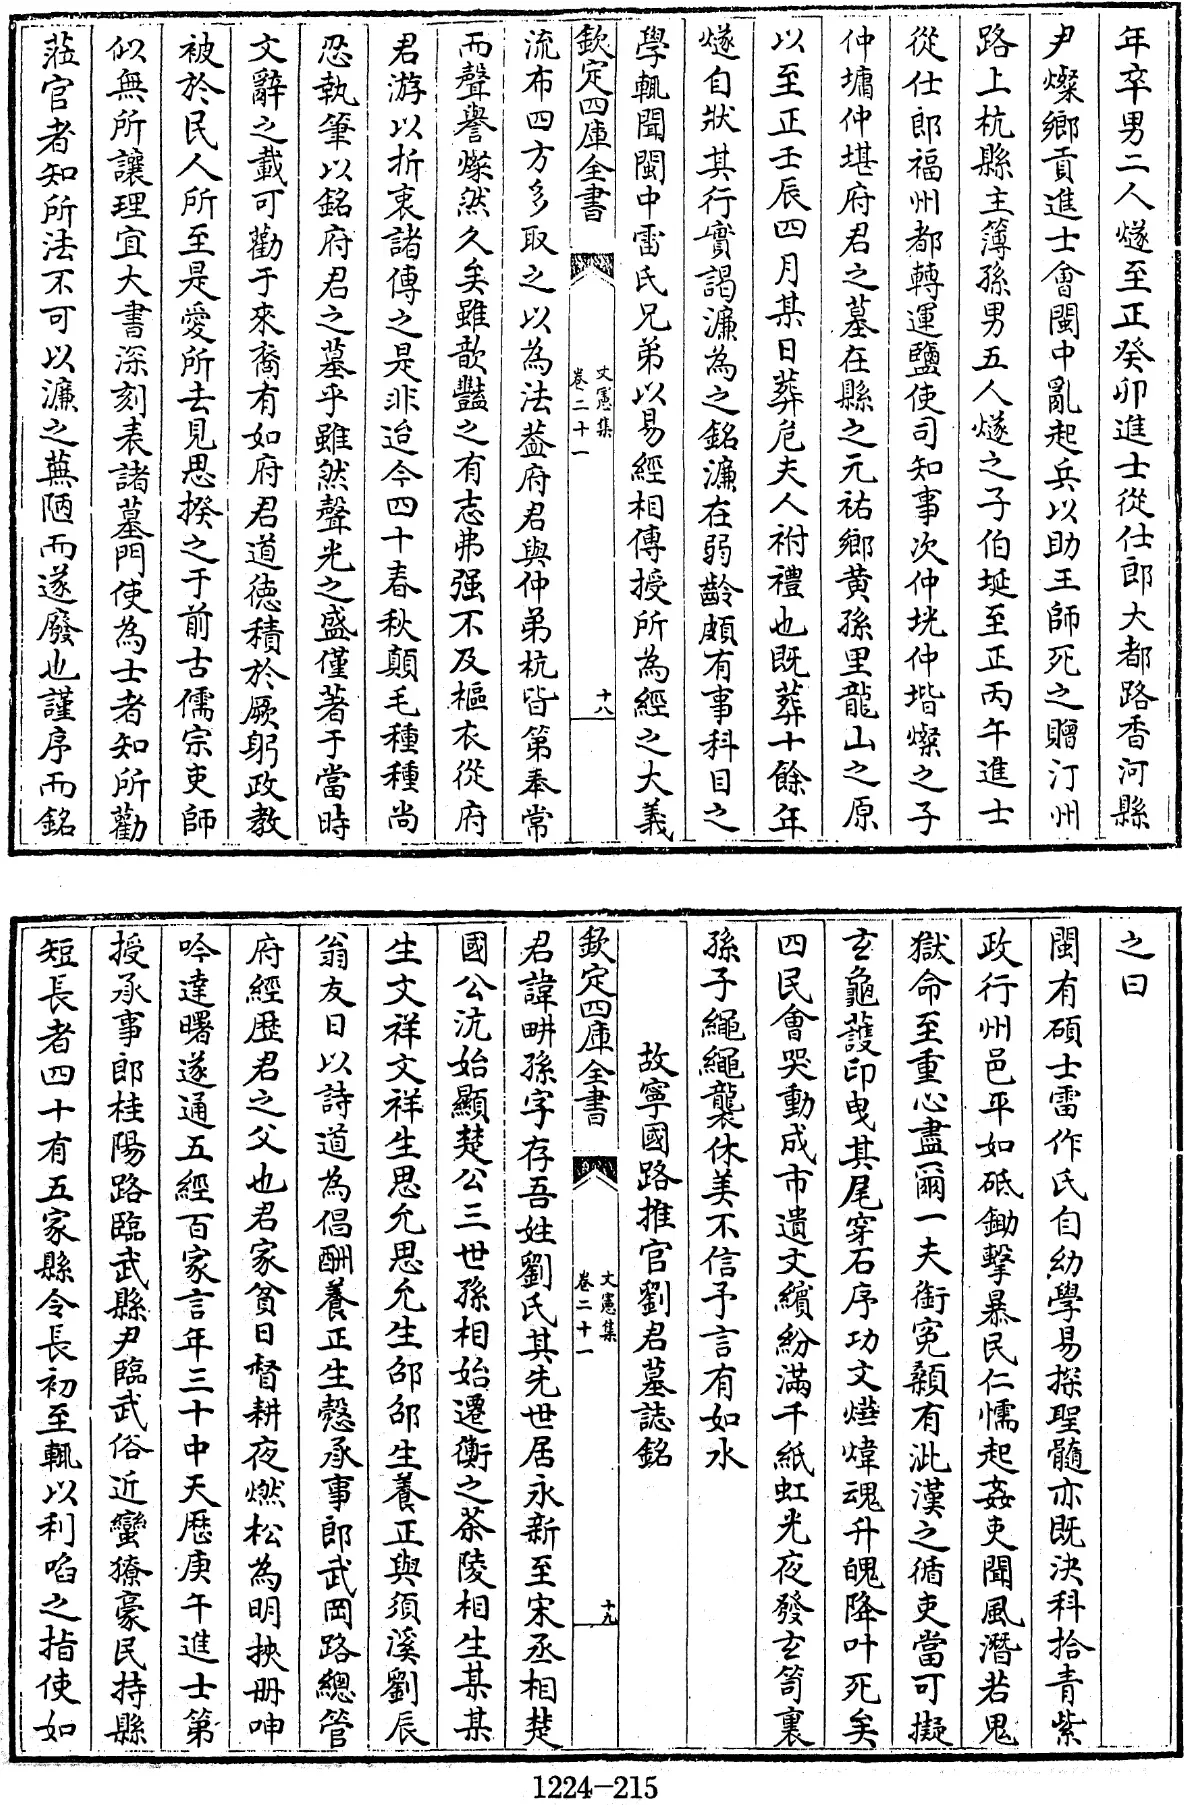 年卒男二人燧至正癸卯進士從仕郎大都路香河縣
尹燦鄉貢進士會閩中亂起兵以助王師死之贈汀州
路上杭縣主簿孫男五人燧之子伯埏至正丙午進士
從仕郎福州都轉運鹽使司知事次仲垙仲堦燦之子
仲墉仲堪府君之墓在縣之元祐鄉黄孫里龍山之原
以至正壬辰四月某日葬危夫人祔禮也既葬十餘年
燧自狀其行實謁濂為之銘濂在弱齡頗有事科目之
學輒聞閩中雷氏兄弟以易經相傳授所為經之大義
欽定四庫全書
文憲集
卷二十一
十八
流布四方多取之以為法葢府君與仲弟杭皆第奉常
而聲譽燦然久矣雖歆豔之有志弗强不及樞衣從府
君游以折衷諸傳之是非迨今四十春秋顛毛種種尚
忍執筆以銘府君之墓乎雖然聲光之盛僅著于當時
文辭之載可勸于來裔有如府君道徳積於厥躬政教
被於民人所至是愛所去見思揆之于前古儒宗吏師
似無所讓理宜大書深刻表諸墓門使為士者知所勸
蒞官者知所法不可以濂之蕪陋而遂廢也謹序而銘
之曰
閩有碩士雷作氏自幼學易探聖髓亦既決科拾青紫
政行州邑平如砥鋤擊暴民仁懦起姦吏聞風潛若鬼
獄命至重心盡爾一夫銜寃顙有泚漢之循吏當可擬
玄龜䕶印曳其尾穿石序功文煒煒魂升魄降叶死矣
四民會哭動成市遺文繽紛滿千紙虹光夜發玄笥裏
孫子繩繩襲休美不信予言有如水
故寧國路推官劉君墓誌銘
欽定四庫全書
文憲集
卷二十一
十九
君諱畊孫字存吾姓劉氏其先世居永新至宋丞相楚
國公沆始顯楚公三世孫相始遷衡之茶陵相生某某
生文祥文祥生思允思允生邵邵生養正與須溪劉辰
翁友日以詩道為倡酬養正生慤承事郎武岡路總管
府經歴君之父也君家貧日督耕夜燃松為明挾冊呻
吟達曙遂通五經百家言年三十中天歴庚午進士第
授承事郎桂陽路臨武縣尹臨武俗近蠻獠豪民持縣
短長者四十有五家縣令長初至輒以利啗之指使如
1224-215